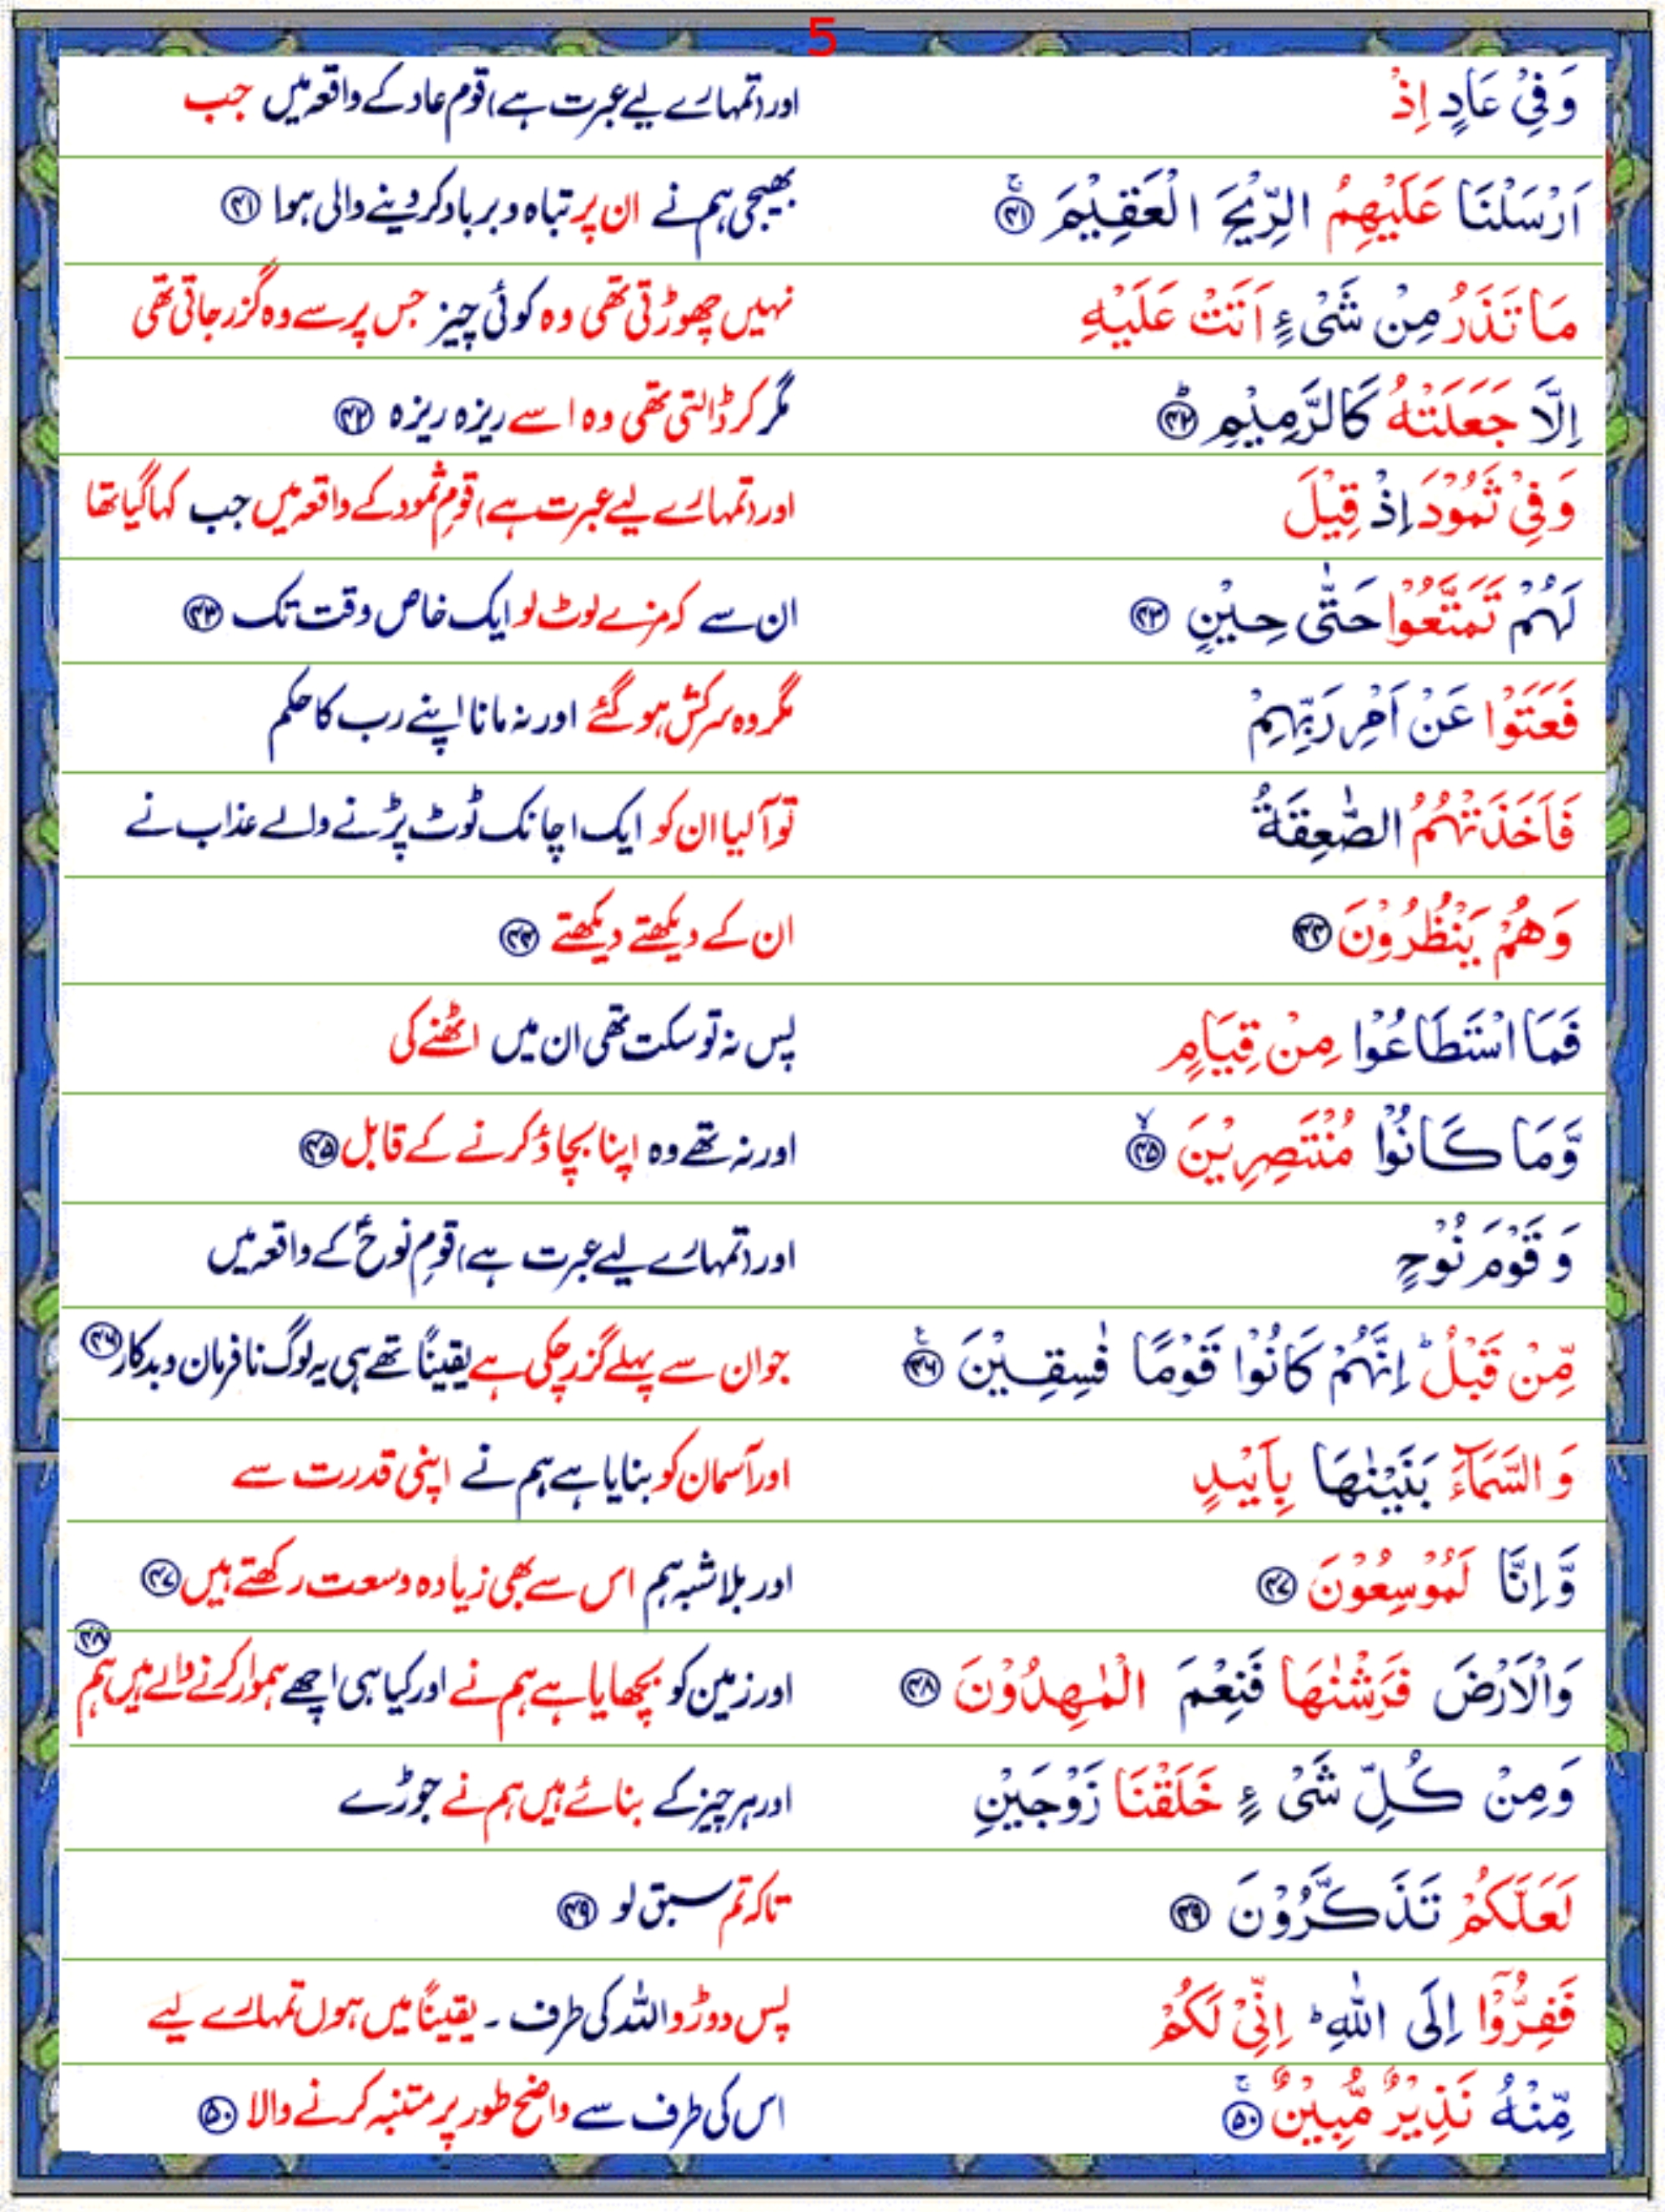 5
وَفِيْ عَادٍ اِذْ اور (تمہارے لیے عبرت ہے) قوم عاد کے واقعہ میں جب
اَرْسَلْنَا عَلَيْهِمُ الرِّيْحَ الْعَقِيْمَ ۚ ﴿۴۱﴾ بھیجی ہم نے ان پر تباہ و برباد کر دینے والی ہوا ﴿۴۱﴾
مَا تَذَرُ مِنْ شَىْءٍ اَتَتْ عَلَيْهِ نہیں چھوڑتی تھی وہ کوئی چیز جس پر سے وہ گزر جاتی تھی
اِلَّا جَعَلَتْهُ كَالرَّمِيْمِ ؕ ﴿۴۲﴾ مگر کر ڈالتی تھی وہ اسے ریزہ ریزہ ﴿۴۲﴾
وَفِيْ ثَمُوْدَ اِذْ قِيْلَ اور (تمہارے لیے عبرت ہے) قومِ ثمود کے واقعہ میں جب کہا گیا تھا
لَهُمْ تَمَتَّعُوْا حَتّٰى حِيْنٍ ﴿۴۳﴾ ان سے کہ مزے لوٹ لو ایک خاص وقت تک ﴿۴۳﴾
فَعَتَوْا عَنْ اَمْرِ رَبِّهِمْ مگر وہ سرکش ہو گئے اور نہ مانا اپنے رب کا حکم
فَاَخَذَتْهُمُ الصّٰعِقَةُ تو آ لیا ان کو ایک اچانک ٹوٹ پڑنے والے عذاب نے
وَهُمْ يَنْظُرُوْنَ ﴿۴۴﴾ ان کے دیکھتے دیکھتے ﴿۴۴﴾
فَمَا اسْتَطَاعُوْا مِنْ قِيَامٍ پس نہ تو سکت تھی ان میں اٹھنے کی
وَّمَا كَانُوْا مُنْتَصِرِيْنَ ۙ ﴿۴۵﴾ اور نہ تھے وہ اپنا بچاؤ کرنے کے قابل ﴿۴۵﴾
وَ قَوْمَ نُوْحٍ اور (تمہارے لیے عبرت ہے) قومِ نوحؑ کے واقعہ میں
مِّنْ قَبْلُ ؕ اِنَّهُمْ كَانُوْا قَوْمًا فٰسِقِيْنَ ۧ ﴿۴۶﴾ جو ان سے پہلے گزر چکی ہے یقیناً تھے ہی یہ لوگ نافرمان و بدکار ﴿۴۶﴾
وَ السَّمَآءَ بَنَيْنٰهَا بِاَيْىدٍ اور آسمان کو بنایا ہے ہم نے اپنی قدرت سے
وَّ اِنَّا لَمُوْسِعُوْنَ ﴿۴۷﴾ اور بلا شبہ ہم اس سے بھی زیادہ وسعت رکھتے ہیں ﴿۴۷﴾
وَالْاَرْضَ فَرَشْنٰهَا فَنِعْمَ الْمٰهِدُوْنَ ﴿۴۸﴾ اور زمین کو بچھایا ہے ہم نے اور کیا ہی اچھے ہموار کرنے والے ہیں ہم ﴿۴۸﴾
وَمِنْ كُلِّ شَىْءٍ خَلَقْنَا زَوْجَيْنِ اور ہر چیز کے بنائے ہیں ہم نے جوڑے
لَعَلَّكُمْ تَذَكَّرُوْنَ ﴿۴۹﴾ تاکہ تم سبق لو ﴿۴۹﴾
فَفِرُّوْٓا اِلَى اللّٰهِ ؕ اِنِّيْ لَكُمْ پس دوڑو اللہ کی طرف ۔ یقیناً میں ہوں تمہارے لیے
مِّنْهُ نَذِيْرٌ مُّبِيْنٌ ۚ ﴿۵۰﴾ اس کی طرف سے واضح طور پر متنبہ کرنے والا ﴿۵۰﴾